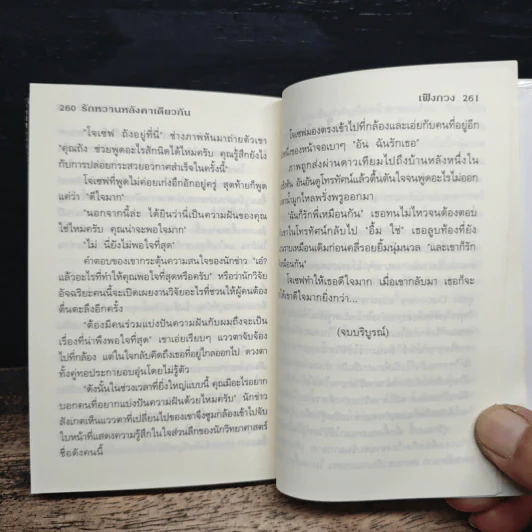 260 รักหวานหลังคาเดียวกัน
"โจเซฟ ถังอยู่ที่นี่" ช่างภาพหันมาถ่ายตัวเขา
"คุณถัง ช่วยพูดอะไรสักนิดได้ไหมครับ คุณรู้สึกยังไง
กับการปล่อยกระสวยอวกาศสำเร็จในครั้งนี้"
โจเซฟที่พูดไม่ค่อยเก่งอึกอักอยู่ครู่ สุดท้ายก็พูด
แค่ว่า "ดีใจมาก"
"นอกจากนี้ล่ะ ได้ยินว่านี่เป็นความฝันของคุณ
ใช่ไหมครับ คุณน่าจะพอใจมาก"
"ไม่ นี่ยังไม่พอใจที่สุด"
คำตอบของเขากระตุ้นความสนใจของนักข่าว "เอ๋?
แล้วอะไรที่ทำให้คุณพอใจที่สุดหรือครับ" หรือว่านักวิจัย
อัจฉริยะคนนี้จะเปิดเผยงานวิจัยอะไรที่ชวนให้ผู้คนต้อง
ตื่นตะลึงอีกครั้ง
"ต้องมีคนร่วมแบ่งปันความฝันกับผมถึงจะเป็น
เรื่องที่น่าพึงพอใจที่สุด" เขาเอ่ยเรียบๆ แววตาจับจ้อง
ไปที่กล้อง แต่ในใจกลับคิดถึงเธอที่อยู่ไกลออกไป ดวงตา
ทั้งคู่ทอประกายอบอุ่นโดยไม่รู้ตัว
"ดังนั้นในช่วงเวลาที่ยิ่งใหญ่แบบนี้ คุณมีอะไรอยาก
บอกคนที่อยากแบ่งปันความฝันด้วยไหมครับ" นักข่าว
สังเกตเห็นแววตาที่เปลี่ยนไปของเขาจึงซูมกล้องเข้าไปจับ
ใบหน้าที่แสดงความรู้สึกในใจส่วนลึกของนักวิทยาศาสตร์
ชื่อดังคนนี้
เฟิงกวง 261
โจเซฟมองตรงเข้าไปที่กล้องและเอ่ยกับคนที่อยู่อีก
หนึ่งของหน้าจอเบาๆ "อัน ฉันรักเธอ"
ภาพถูกส่งผ่านดาวเทียมไปถึงบ้านหลังหนึ่งใน
อันอันดูโทรทัศน์แล้วตื้นตันใจจนพูดอะไรไม่ออก
น้ำมูกไหลพรั่งพรูออกมา
"ฉันก็รักพี่เหมือนกัน" เธอทนไม่ไหวจนต้องตอบ
ในโทรทัศน์กลับไป "อื้ม ใช่" เธอลูบท้องที่ยัง
ราบเหมือนเดิมก่อนคลี่รอยยิ้มนุ่มนวล "และเขาก็รัก
เหมือนกัน"
โจเซฟทำให้เธอดีใจมาก เมื่อเขากลับมา เธอก็จะ
ให้เขาดีใจมากยิ่งกว่า...
(จบบริบูรณ์)